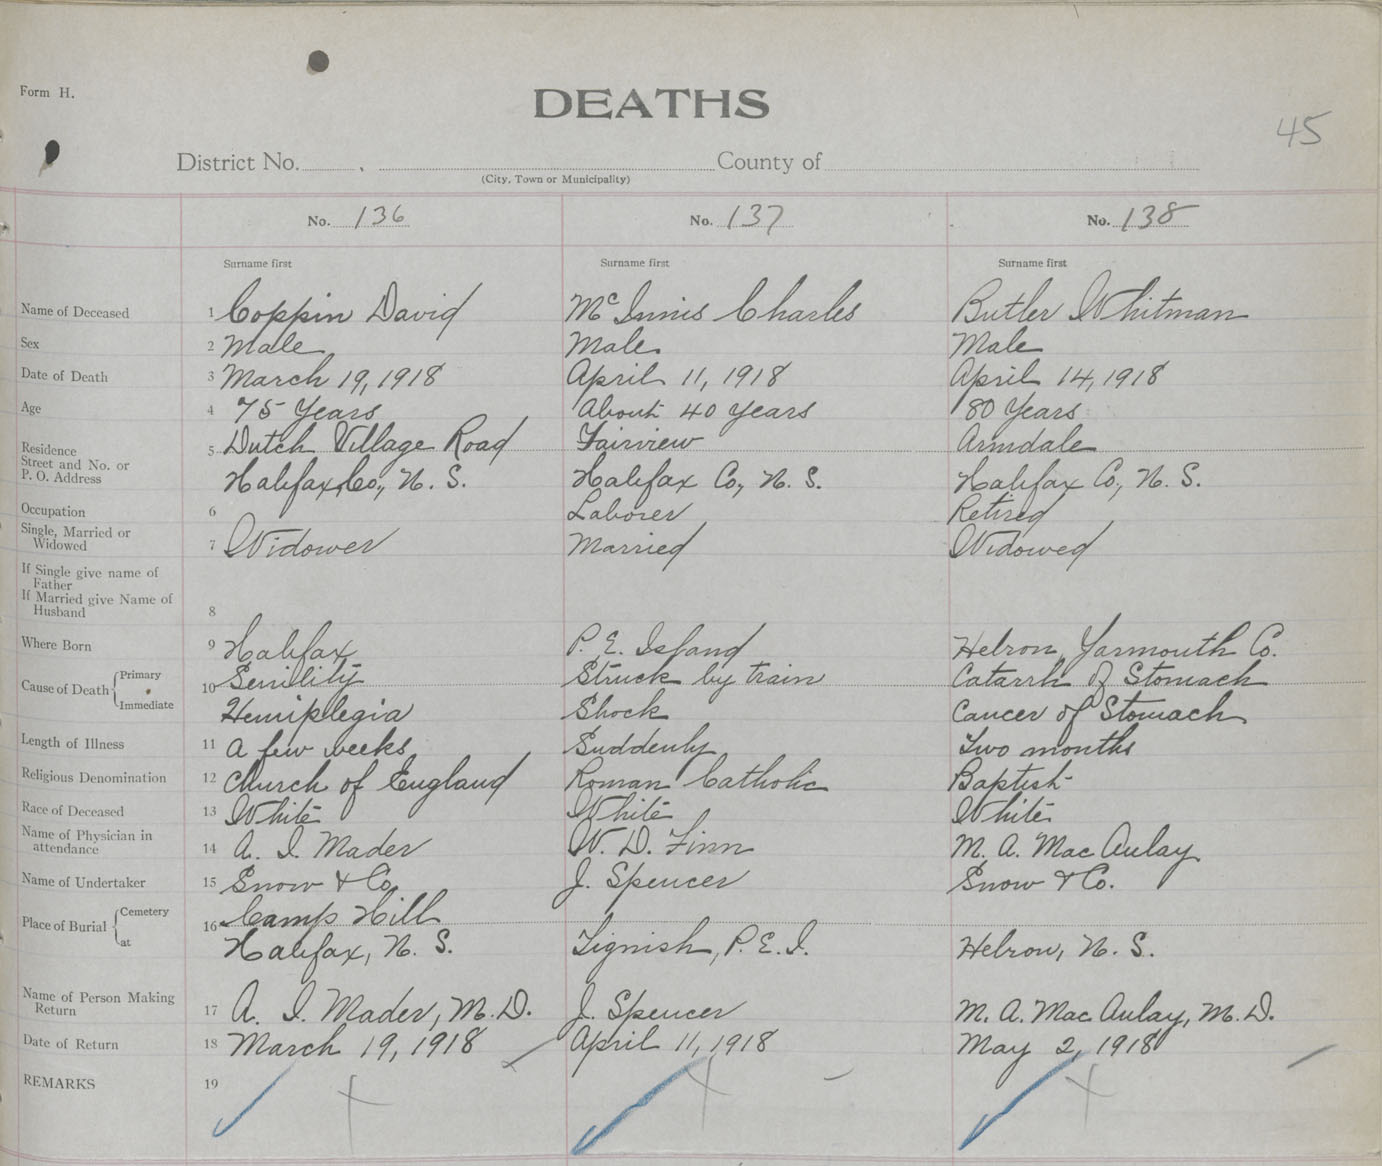 Form H.
DEATHS
45
District No. , County of
(City, Town or Municipality)
No. 136 No. 137 No. 138
Surname first Surname first Surname first
Name of Deceased 1 Coppin David McInnis Charles Butler Whitman
Sex 2 Male Male Male
Date of Death 3 March 19, 1918 April 11, 1918 April 14, 1918
Age 4 75 Years About 40 Years 80 Years
Residence 5 Dutch Village Road Fairview Armdale
Street and No. or
P. O. Address Halifax, Co., N. S. Halifax Co, N. S. Halifax Co, N. S.
Occupation 6 Laborer Retired
Single, Married or
Widowed 7 Widower Married Widowed
If Single give name of
Father
If Married give Name of
Husband 8
Where Born 9 Halifax P. E. Island Hebron, Yarmouth Co.
Cause of Death { Primary 10 Senility Struck by train Catarrh of Stomach
Immediate Hemiplegia Shock Cancer of Stomach
Length of Illness 11 A few weeks Suddenly Two months
Religious Denomination 12 Church of England Roman Catholic Baptist
Race of Deceased 13 White White White
Name of Physician in
attendance 14 A. I. Mader W. D. Finn M. A. MacAulay
Name of Undertaker 15 Snow & Co. J. Spencer Snow & Co.
Place of Burial { Cemetery 16 Camp Hill
at Halifax, N. S. Tignish, P. E. I. Hebron, N. S.
Name of Person Making
Return 17 A. I. Mader, M. D. J. Spencer M. A. MacAulay, M. D.
Date of Return 18 March 19, 1918 April 11, 1918 May 2, 1918
REMARKS 19